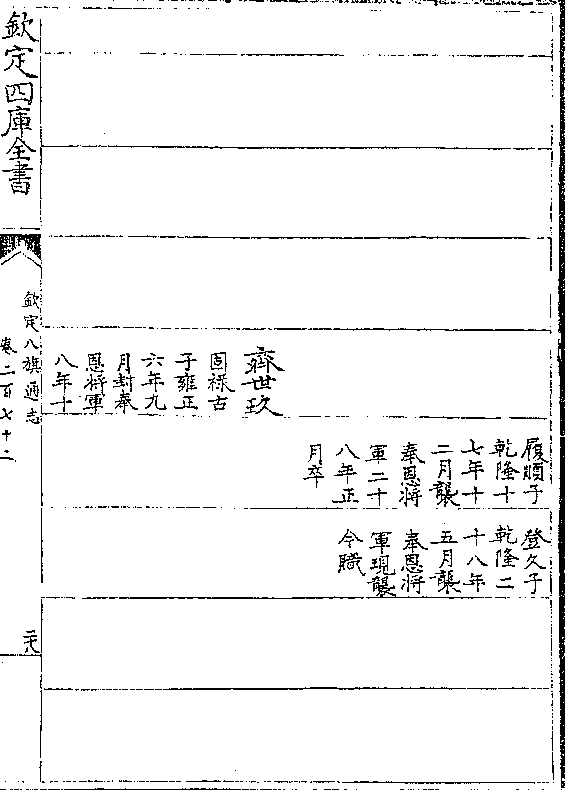 齊世玖
固祿古
子雍正
六年九
月封奉
恩將軍
八年十
履順子
乾隆十
七年十
二月襲
奉恩將
軍二十
八年正
月卒
登久子
乾隆二
十八年
五月襲
奉恩將
軍現襲
今職
欽定四庫全書
欽定八旗通志
卷二百七十二